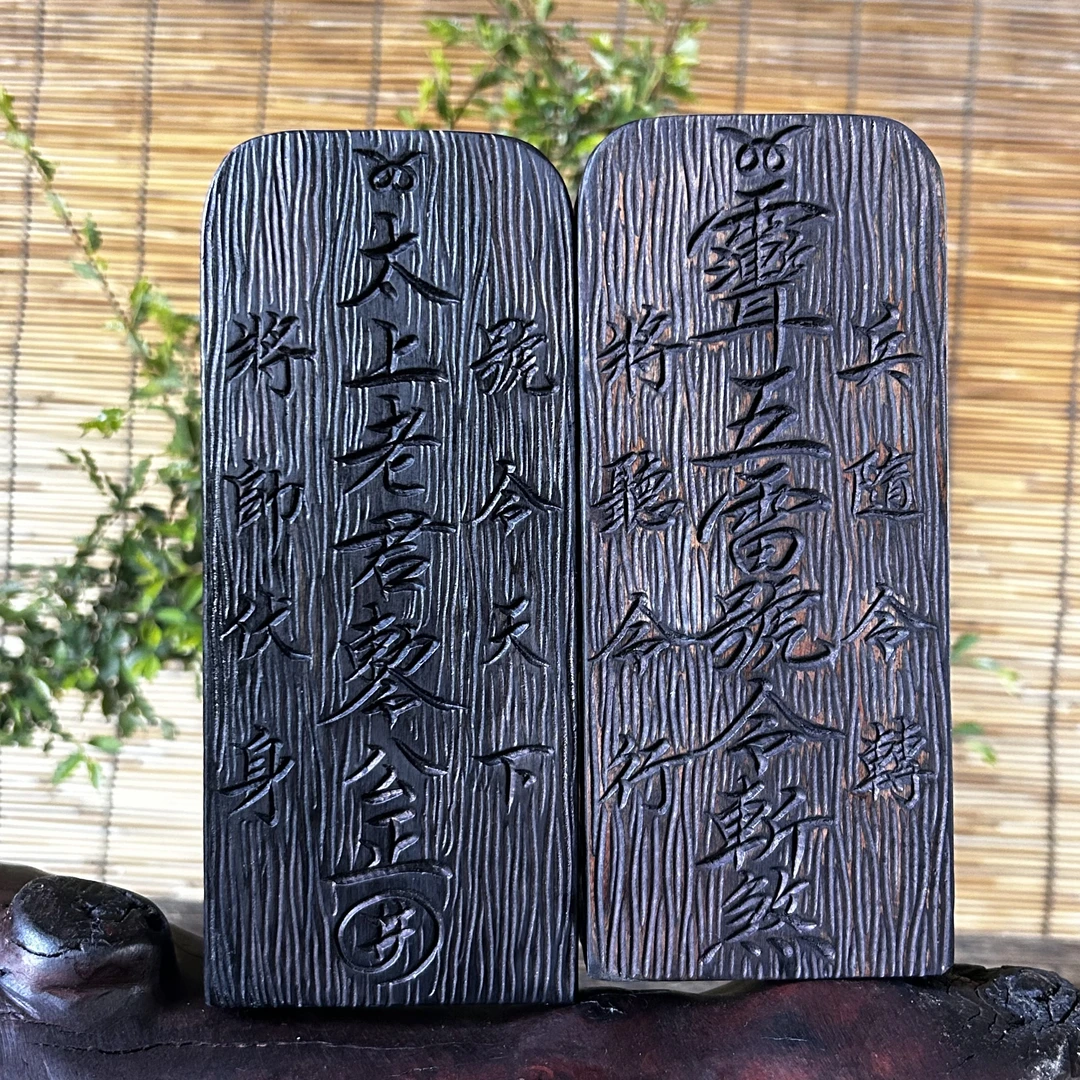 兵隨令轉
五雷號令斬煞
將聽令行
號令天下
太上老君勅令公正
將帥伏身